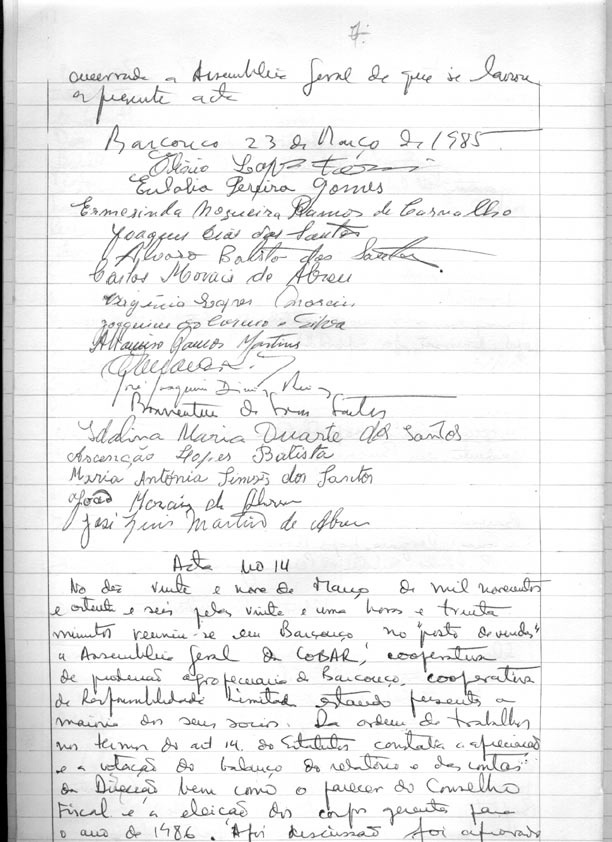 7.
encerrada a Assembleia Geral de que se lavrou
a presente acta
Barcouço 23 de Março de 1985
Elísio Lopes
Eulália Pereira Gomes
Ermesinda Nogueira Ramos de Carvalho
Joaquim Dias dos Santos
Alvaro Batista dos Santos
Carlos Morais de Abreu
Virgínio Lopes Morais
Joaquim do Carmo e Silva
Ramos Martins
José Joaquim Diniz
Boaventura de Santos
Idalina Maria Duarte dos Santos
Ascenção Lopes Batista
Maria Antónia Simões dos Santos
João Morais de Abreu
José Luis Martins de Abreu
Acta nº 14
No dia vinte e nove de Março de mil novecentos
e oitenta e seis pelas vinte e uma horas e trinta
minutos reuniu-se em Barcouço no "posto de vendas"
a Assembleia Geral da COBAR, cooperativa
de produção agropecuária de Barcouço, cooperativa
de Responsabilidade Limitada estando presente a
maioria dos seus socios. Da ordem de trabalhos
nos termos do art 14. do Estatutos constata a apreciação
e a votação do balanço do relatório e das contas
da Direcção bem como o parecer do Conselho
Fiscal e a eleição dos corpos gerentes para
o ano de 1986. Após discussão foi aprovado